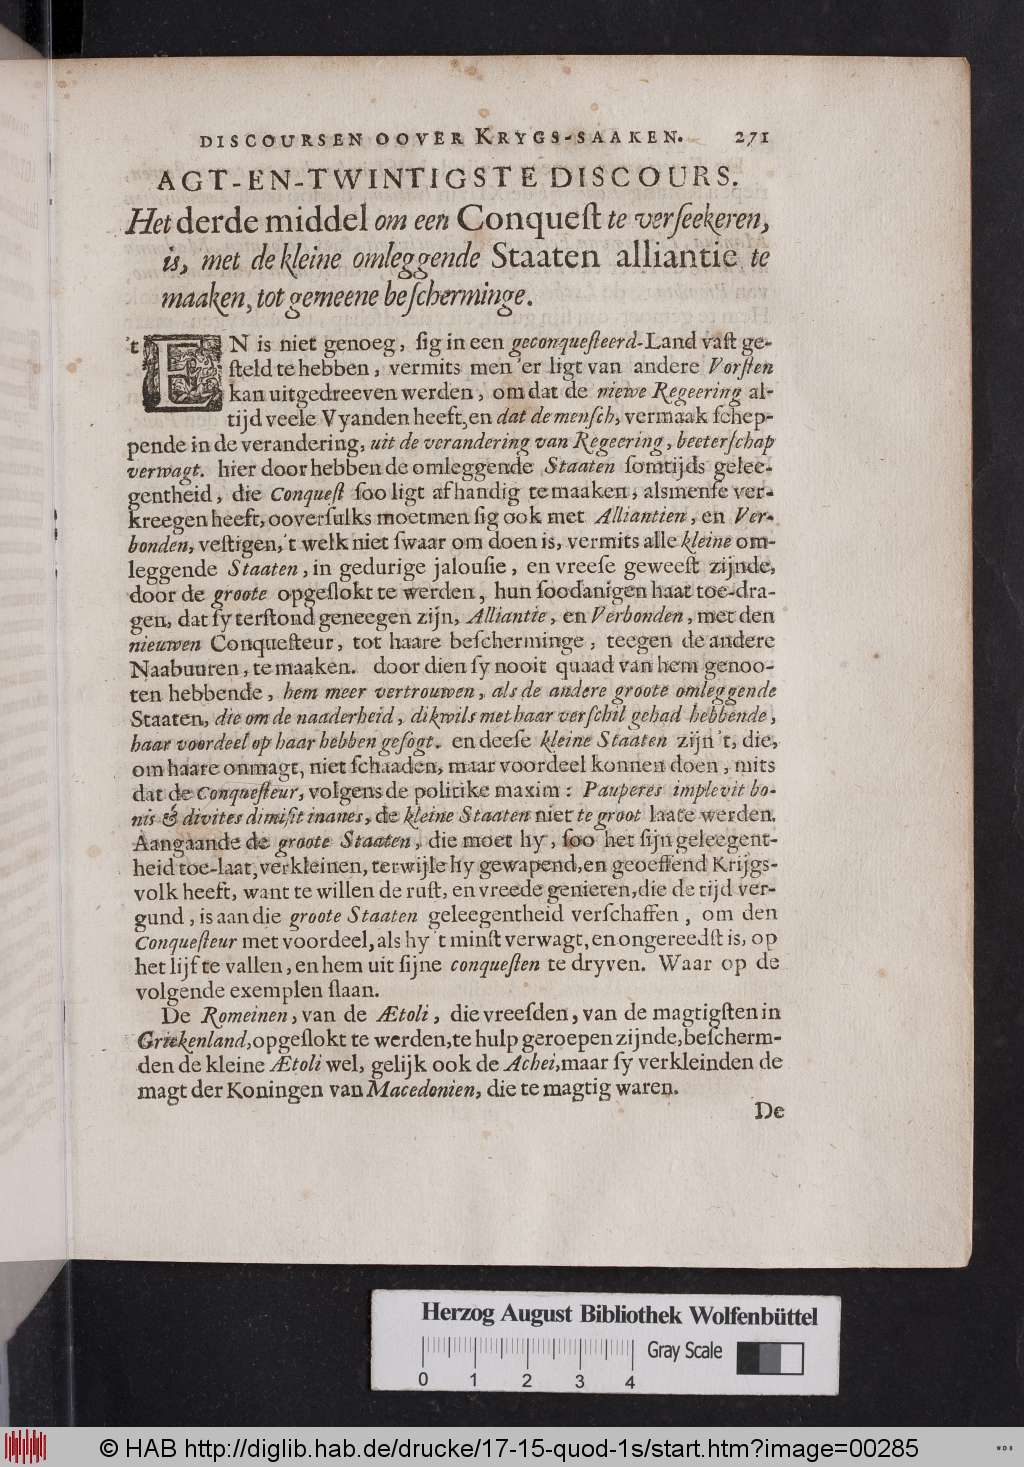 DISCOURSEN OOVER KRYGS-SAAKEN. 271
AGT-EN-TWINTIGSTE DISCOURS.
Het derde middel om een Conqueſt te verſeekeren,
is, met de kleine omleggende Staaten alliantie te
maaken, tot gemeene beſcherminge.
't EN is niet genoeg, ſig in een geconqueſteerd-Land vaſt ge-
ſteld te hebben, vermits men 'er ligt van andere Vorſten
kan uitgedreeven werden, om dat de niewe Regeering al-
tijd veele Vyanden heeft, en dat de menſch, vermaak ſchep-
pende in de verandering, uit de verandering van Regeering, beeterſchap
verwagt. hier door hebben de omleggende Staaten ſomtijds gelee-
gentheid, die Conqueſt ſoo ligt afhandig te maaken, alsmenſe ver-
kreegen heeft, ooverſulks moetmen ſig ook met Alliantien, en Ver-
bonden, veſtigen, 't welk niet ſwaar om doen is, vermits alle kleine om-
leggende Staaten, in gedurige jalouſie, en vreeſe geweeſt zijnde,
door de groote opgeſlokt te werden, hun ſoodanigen haat toe-dra-
gen, dat ſy terſtond geneegen zijn, Alliantie, en Verbonden, met den
nieuwen Conqueſteur, tot haare beſcherminge, teegen de andere
Naabuuren, te maaken. door dien ſy nooit quaad van hem genoo-
ten hebbende, hem meer vertrouwen, als de andere groote omleggende
Staaten, die om de naaderheid, dikwils met haar verſchil gehad hebbende,
haar voordeel op haar hebben geſogt. en deeſe kleine Staaten zijn 't, die,
om haare onmagt, niet ſchaaden, maar voordeel konnen doen, mits
dat de Conqueſteur, volgens de politike maxim: Pauperes implevit bo-
nis & divites dimiſit inanes, de kleine Staaten niet te groot laate werden.
Aangaande de groote Staaten, die moet hy, ſoo het ſijn geleegent-
heid toe-laat, verkleinen, terwijle hy gewapend, en geoeffend Krijgs-
volk heeft, want te willen de ruſt, en vreede genieten, die de tijd ver-
gund, is aan die groote Staaten geleegentheid verſchaffen, om den
Conqueſteur met voordeel, als hy 't minſt verwagt, en ongereedſt is, op
het lijf te vallen, en hem uit ſijne conqueſten te dryven. Waar op de
volgende exemplen ſlaan.
De Romeinen, van de Ætoli, die vreeſden, van de magtigſten in
Griekenland, opgeſlokt te werden, te hulp geroepen zijnde, beſcherm-
den de kleine Ætoli wel, gelijk ook de Achei, maar ſy verkleinden de
magt der Koningen van Macedonien, die te magtig waren.
De
Herzog August Bibliothek Wolfenbüttel
Gray Scale
0 1 2 3 4
© HAB http://diglib.hab.de/drucke/17-15-quod-1s/start.htm?image=00285
WDB